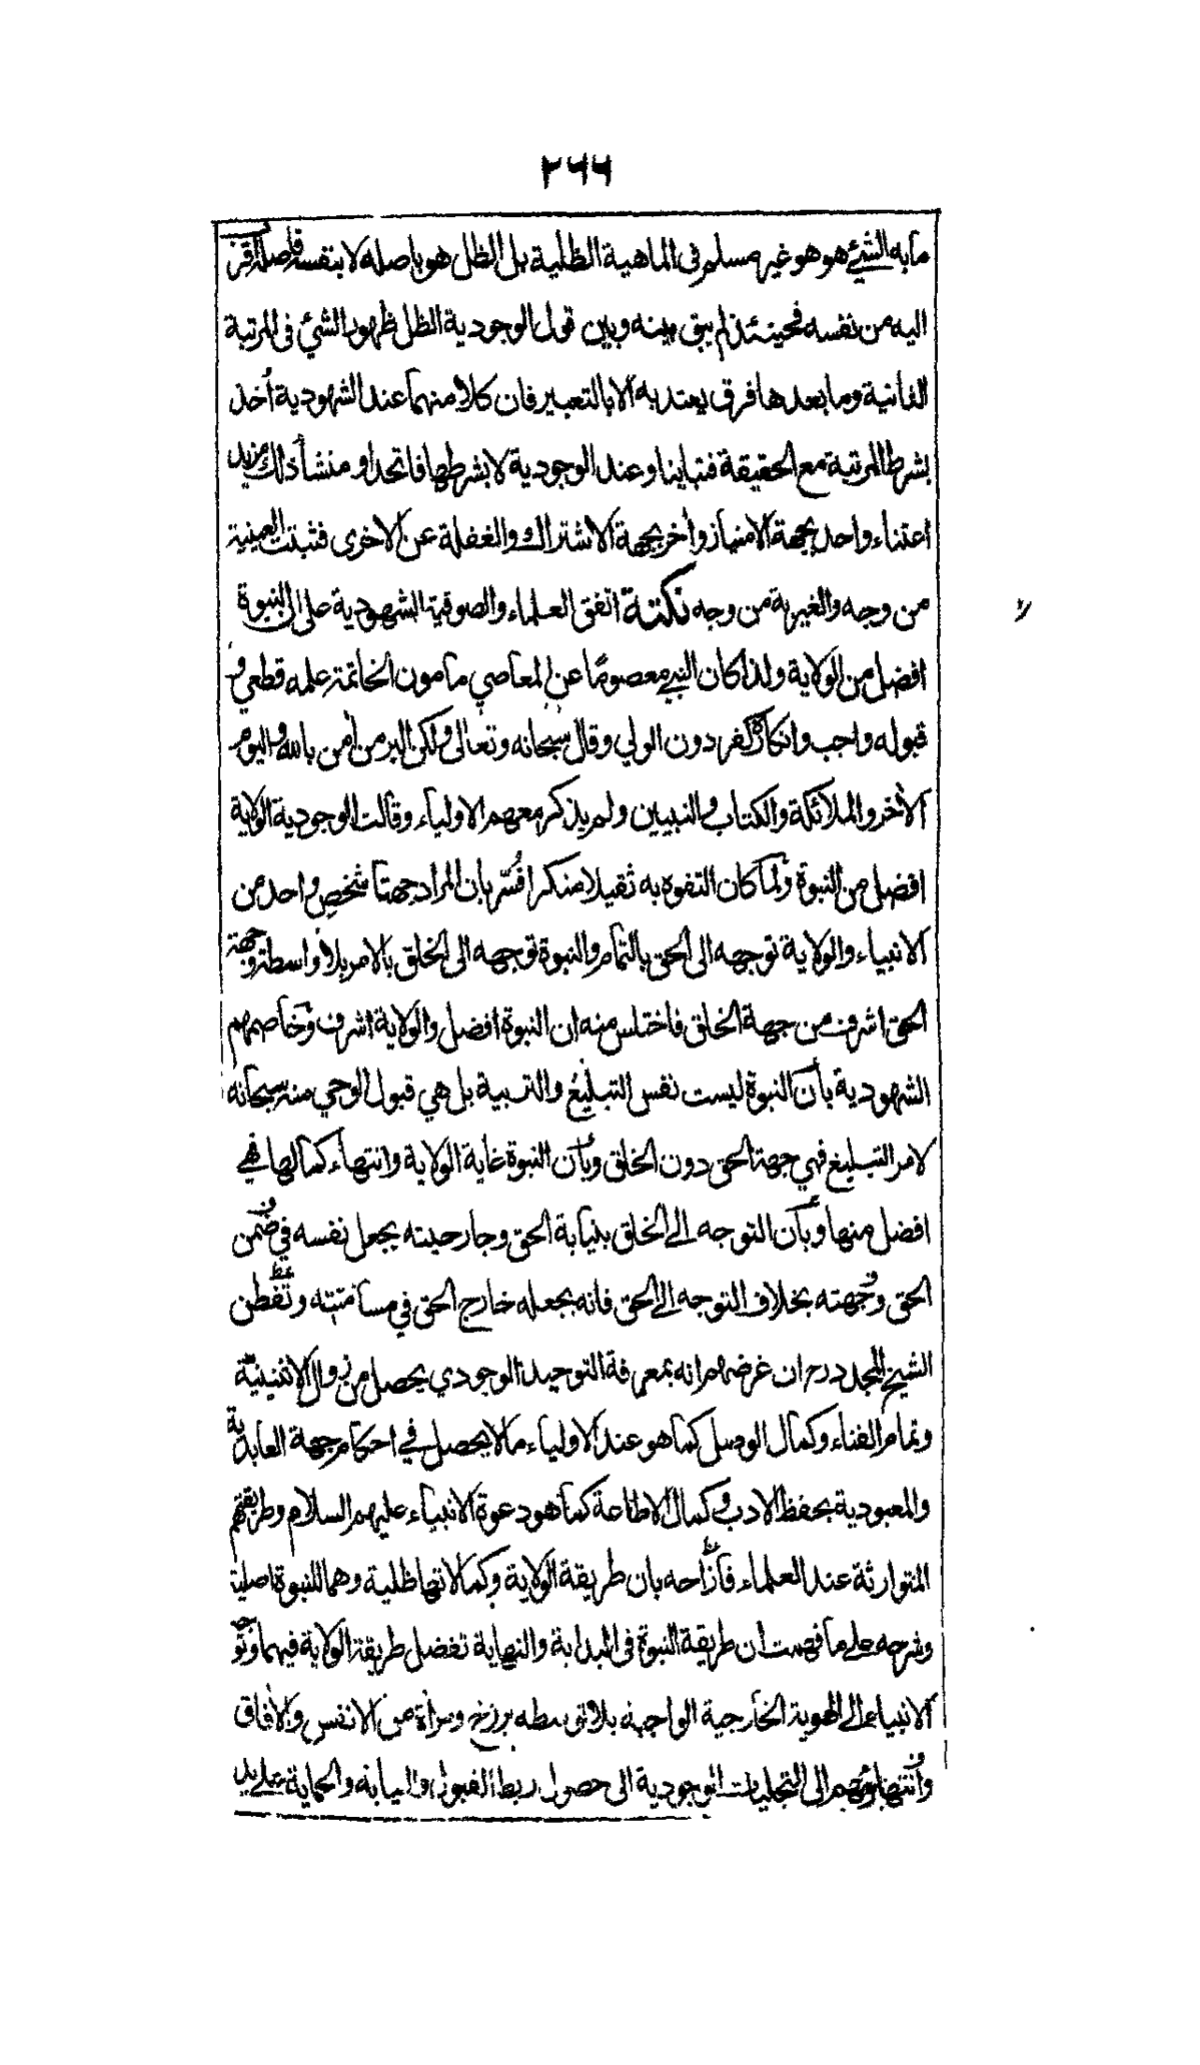 ٢٦٦
مابه الشئ هو هو غير مسلم في الماهية الظلية بل الظل هو باصله لا بنفسه فاصله اقرب
اليه من نفسه فحينئذ لم يبق بينه وبين قول الوجودية الظل ظهور الشئ في المرتبة
الثانية وما بعدها فرق يعتد به الا بالتعبير فان كلا منهما عند الشهودية أخذ
بشرط المرتبة مع الحقيقة فتباينا وعند الوجودية لا بشرطها فاتحدا و منشأ ذلك مزيد
اعتناء واحد بجهة الامتياز وأخر بجهة الاشتراك والغفلة عن الاخرى فثبتت العينية
من وجه والغيرية من وجه نكتة اتفق العلماء والصوفية الشهودية على ان النبوة
افضل من الولاية ولذا كان النبي معصومًا عن المعاصي مأمون الخاتمة علمه قطعي و
قبوله واجب وانكاره كفر دون الولي وقال سبحانه وتعالى ولكن البر من أمن بالله واليوم
الأخر والملائكة والكتاب والنبيين ولم يذكر معهم الاولياء وقالت الوجودية الولاية
افضل من النبوة ولما كان التفوه به ثقيلا منكرا فُسّر بان المراد جهتا شخص واحد من
الانبياء والولاية توجهه الى الحق بالتمام والنبوة توجهه الى الخلق بالامر بلا واسطة وجهة
الحق اشرف من جهة الخلق فاختلس منه ان النبوة افضل والولاية اشرف وخاصمهم
الشهودية بأن النبوة ليست نفس التبليغ والتربية بل هي قبول الوحي منه سبحانه
لامر التبليغ فهي جهة الحق دون الخلق وبأن النبوة غاية الولاية وانتهاء كمالها فهي
افضل منها وبأن التوجه الى الخلق بنيابة الحق وجارحيته يجعل نفسه في ضمن
الحق وجهته بخلاف التوجه الى الحق فانه يجعله خارج الحق في مسامتته وتفطن
الشيخ المجدد رح ان غرضهم انه بمعرفة التوحيد الوجودي يحصل من زوال الاثنينية
وتمام الفناء وكمال الوصل كما هو عند الاولياء مالا يحصل في احكام جهة العابدية
والمعبودية بحفظ الادب وكمال الاطاعة كما هو دعوة الانبياء عليهم السلام وطريقتهم
المتوارثة عند العلماء فأزاحه بان طريقة الولاية وكمالاتها ظلية وهما للنبوة اصلية
وشرحه على ما فهمت ان طريقة النبوة في البداية والنهاية تفضل طريقة الولاية فيهما وتوجه
الانبياء الى الهوية الخارجية الواجبة بلا توسطه برزخ ومرأة من الانفس والأفاق
وانتهاؤهم الى التجليات الوجودية الى حصول ربط القبول والنيابة والحماية على يد